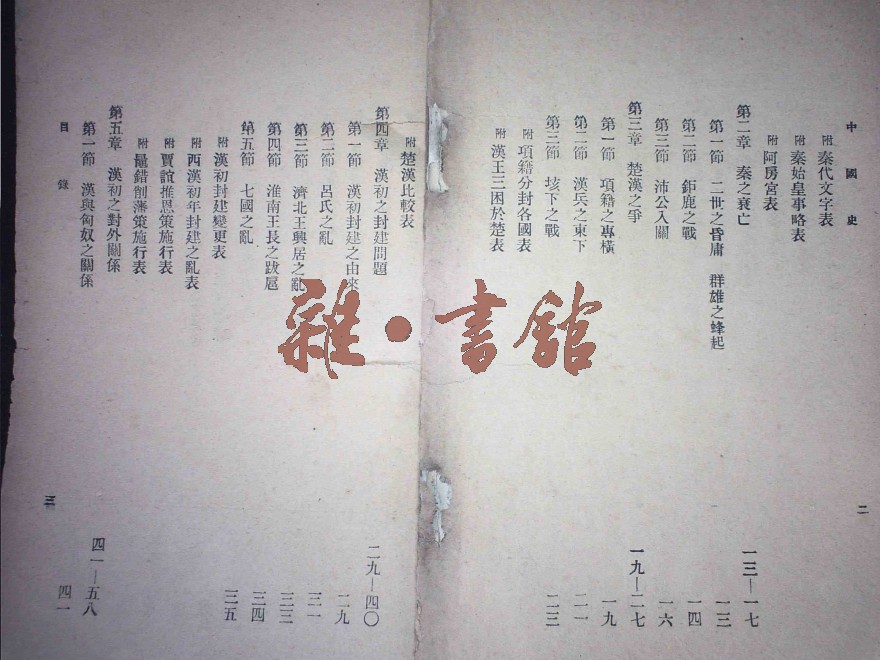 中國史
附 秦代文字表
附 秦始皇事略表
附 阿房宮表
第二章 秦之衰亡 一三—一七
第一節 二世之昏庸 群雄之蜂起 一三
第二節 鉅鹿之戰 一四
第三節 沛公入關 一六
第三章 楚漢之爭 一九—二七
第一節 項籍之專橫 一九
第二節 漢兵之東下 二一
第三節 垓下之戰 二三
附 項籍分封各國表
附 漢王三困於楚表
二
附 楚漢比較表
第四章 漢初之封建問題 二九—四〇
第一節 漢初封建之由來 二九
第二節 呂氏之亂 三一
第三節 濟北王興居之亂 三三
第四節 淮南王長之跋扈 三四
第五節 七國之亂 三五
附 漢初封建變更表
附 西漢初年封建之亂表
附 賈誼推恩策施行表
附 鼂錯削藩策施行表
第五章 漢初之對外關係 四一—五八
第一節 漢與匈奴之關係 四一
目錄
三
雜·書館